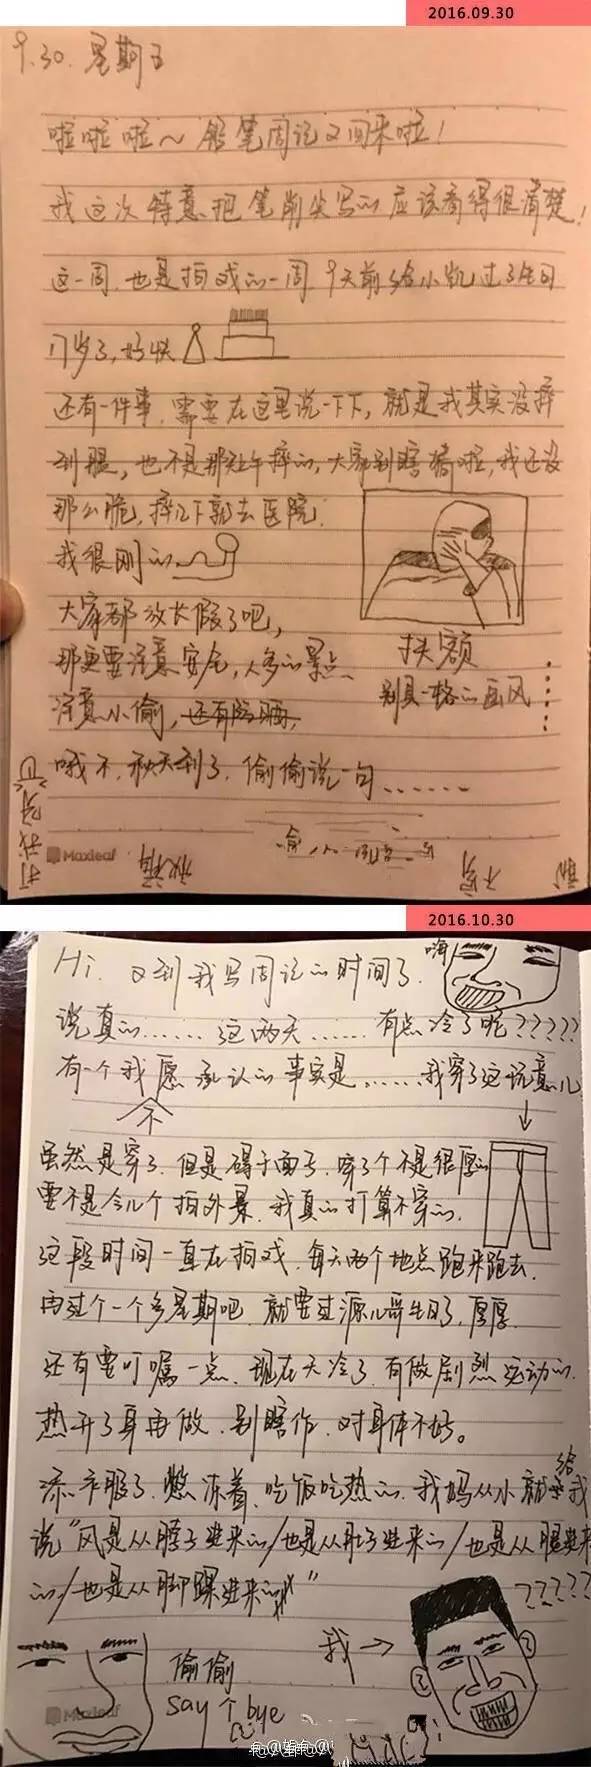 2016.09.30
9.30. 星期五
啦啦啦~ 铅笔周记又回来啦！
我这次特意把笔削尖写的应该看得很清楚！
这一周，也是拍戏的一周，9天前给小凯过了生日
17岁了，好快
还有一件事，需要在这里说一下下，就是我其实没摔
到腿，也不是那处午摔的，大家别瞎猜啦，我还没
那么脆，摔几下就去医院.
我很刚的
大家都放长假了吧，
那更要注意安全，人多的景点、
扶额
注意小偷，还有防晒，
别具一格的画风
哦不，秋天到了，偷偷说一句......
Maxleaf
2016.10.30
Hi. 又到我写周记的时间了.
嗨
说真的...... 这两天...... 有点冷了呢?????
有一个我愿承认的事实是......我穿了这玩意儿
不
虽然是穿了，但是碍于面子，穿了个不是很厚的
要不是今儿个拍外景，我真的打算不穿的.
这段时间一直在拍戏，每天两个地点跑来跑去.
再过个一个多星期吧，就要过源儿哥生日了，厚厚.
还有要叮嘱一点，现在天冷了，有做剧烈运动的.
热开了身再做，别瞎作，对身体不好。
添衣服了，憋冻着，吃饭吃热的，我妈从小就给我
说"风是从脖子进来的/也是从肚子进来的/也是从腿进来
的/也是从脚踝进来的"
?????
我→
偷偷
say 个 bye
Maxleaf